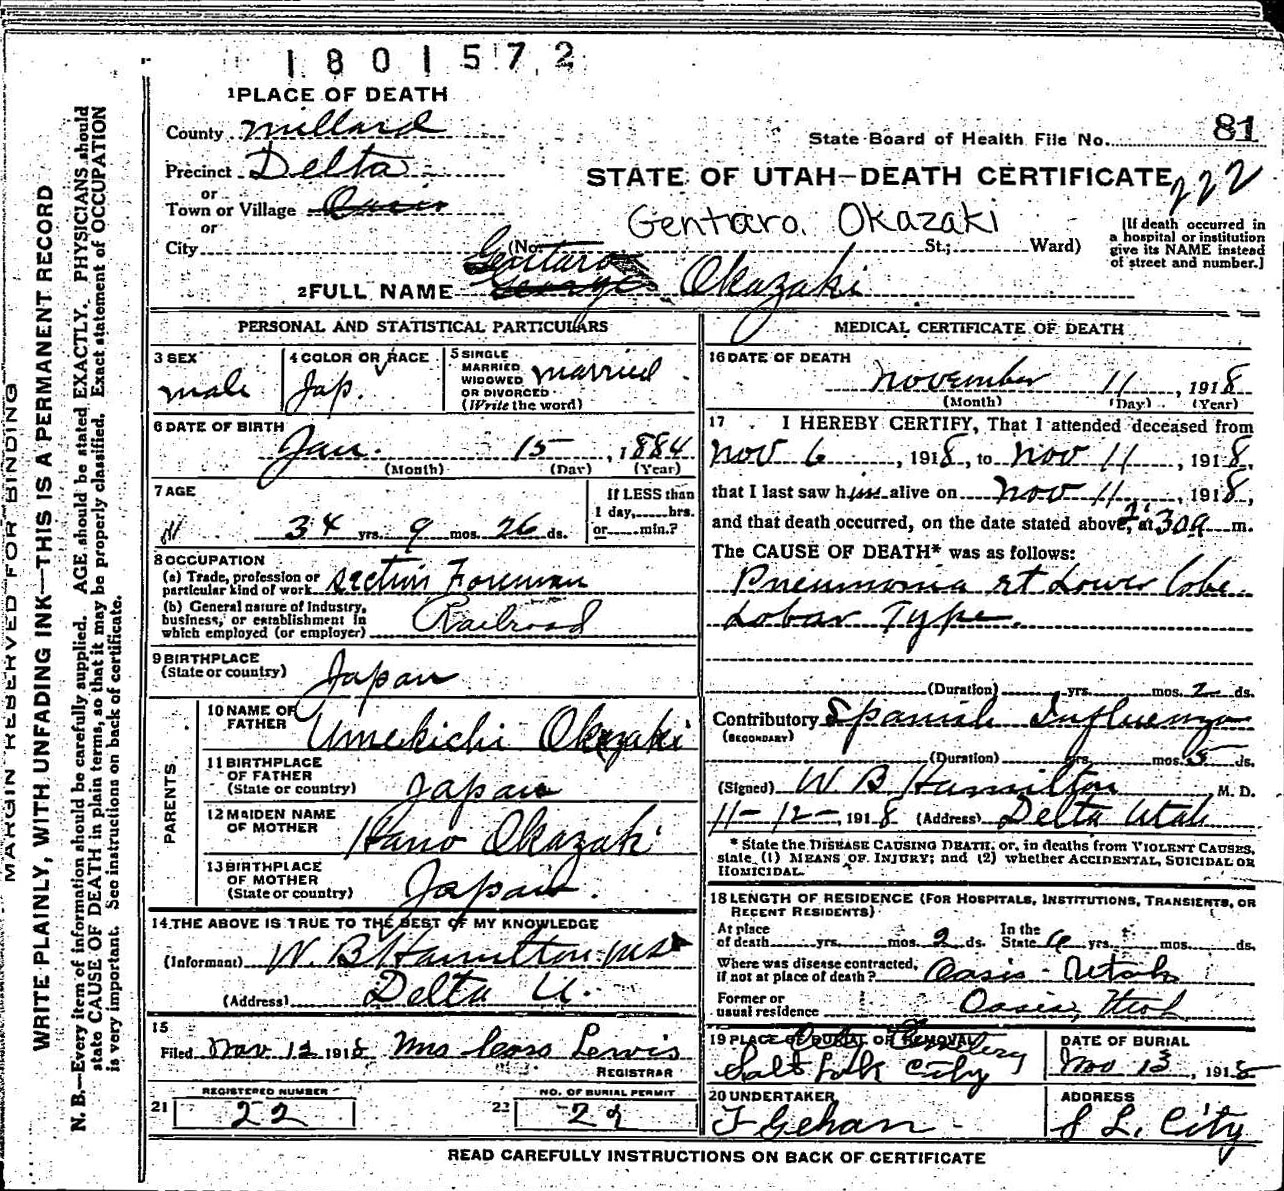 1801572
1 PLACE OF DEATH
County Millard
State Board of Health File No. 81
Precinct Delta
STATE OF UTAH—DEATH CERTIFICATE 222
or
Town or Village Oasis
or
Gentaro. Okazaki
City (No. St.; Ward)
[If death occurred in
a hospital or institution
give its NAME instead
of street and number.]
Gentaro
2 FULL NAME George Okazaki
PERSONAL AND STATISTICAL PARTICULARS
3 SEX
male
4 COLOR OR RACE
Jap.
5 SINGLE
MARRIED
WIDOWED
OR DIVORCED
(Write the word)
married
6 DATE OF BIRTH
Jan. 15 , 1884
(Month) (Day) (Year)
7 AGE
34 yrs. 9 mos. 26 ds.
If LESS than
1 day,.....hrs.
or.....min.?
8 OCCUPATION
(a) Trade, profession or
particular kind of work section Foreman
(b) General nature of Industry,
business, or establishment in
which employed (or employer) Railroad
9 BIRTHPLACE
(State or country) Japan
PARENTS
10 NAME OF
FATHER Umekichi Okazaki
11 BIRTHPLACE
OF FATHER
(State or country) Japan
12 MAIDEN NAME
OF MOTHER Hano Okazaki
13 BIRTHPLACE
OF MOTHER
(State or country) Japan.
14 THE ABOVE IS TRUE TO THE BEST OF MY KNOWLEDGE
(Informant) W. B Hamilton MD
(Address) Delta U.
15
Filed Nov 12 1918 Mrs Lewis
REGISTRAR
REGISTERED NUMBER
21 22
NO. OF BURIAL PERMIT
22 29
MEDICAL CERTIFICATE OF DEATH
16 DATE OF DEATH
November 11 , 1918
(Month) (Day) (Year)
17 I HEREBY CERTIFY, That I attended deceased from
Nov 6 , 1918, to Nov 11 , 1918,
that I last saw him alive on Nov 11 , 1918,
and that death occurred, on the date stated above, at 2:30a m.
The CAUSE OF DEATH* was as follows:
Pneumonia rt Lower lobe
Lobar Type.
(Duration) yrs. mos. 2 ds.
Contributory Spanish Influenza
(SECONDARY)
(Duration) yrs. mos. 5 ds.
(Signed) W B Hamilton M. D.
11-12-, 1918 (Address) Delta Utah
* State the DISEASE CAUSING DEATH, or, in deaths from VIOLENT CAUSES,
state (1) MEANS OF INJURY; and (2) whether ACCIDENTAL, SUICIDAL OR
HOMICIDAL.
18 LENGTH OF RESIDENCE (FOR HOSPITALS, INSTITUTIONS, TRANSIENTS, OR
RECENT RESIDENTS)
At place
of death yrs. mos. 2 ds. In the
State yrs. mos. ds.
Where was disease contracted,
if not at place of death? Oasis - Utah
Former or
usual residence Oasis, Utah
19 PLACE OF BURIAL OR REMOVAL
Cemetery
Salt Lake City
DATE OF BURIAL
Nov 13, 1918
20 UNDERTAKER
ADDRESS
S L. City
READ CAREFULLY INSTRUCTIONS ON BACK OF CERTIFICATE
MARGIN RESERVED FOR BINDING
WRITE PLAINLY, WITH UNFADING INK—THIS IS A PERMANENT RECORD
N. B.—Every item of information should be carefully supplied. AGE should be stated EXACTLY. PHYSICIANS should
state CAUSE OF DEATH in plain terms, so that it may be properly classified. Exact statement of OCCUPATION
is very important. See instructions on back of certificate.